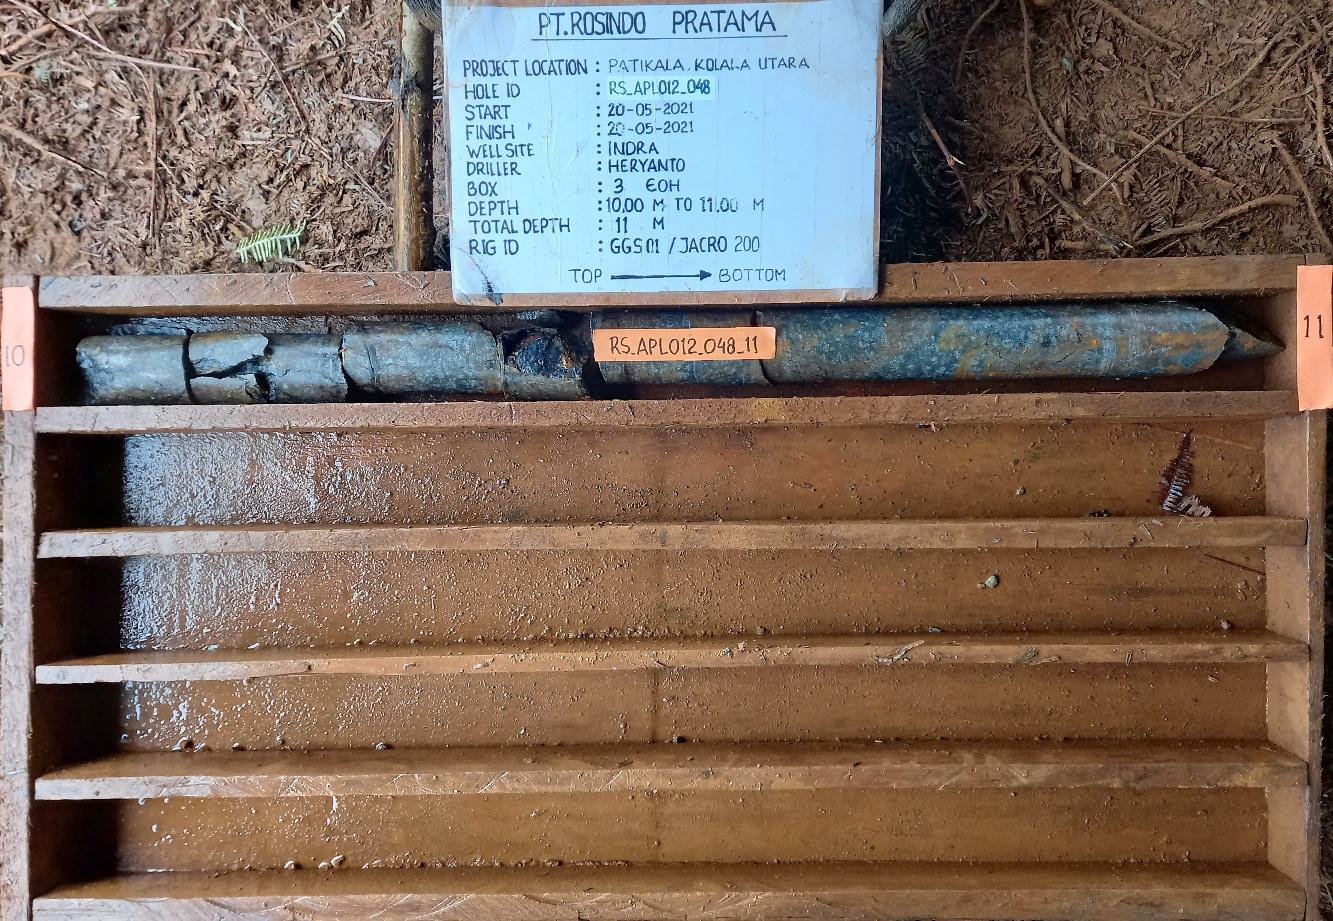 PT.ROSINDO PRATAMA
PROJECT LOCATION : PATIKALA, KOLAKA UTARA
HOLE ID : RS_APL012_048
START : 20-05-2021
FINISH : 20-05-2021
WELLSITE : INDRA
DRILLER : HERYANTO
BOX : 3 EOH
DEPTH : 10,00 M TO 11,00 M
TOTAL DEPTH : 11 M
RIG ID : GGS01 / JACRO 200
TOP BOTTOM
10
RS_APL012_048_11
11